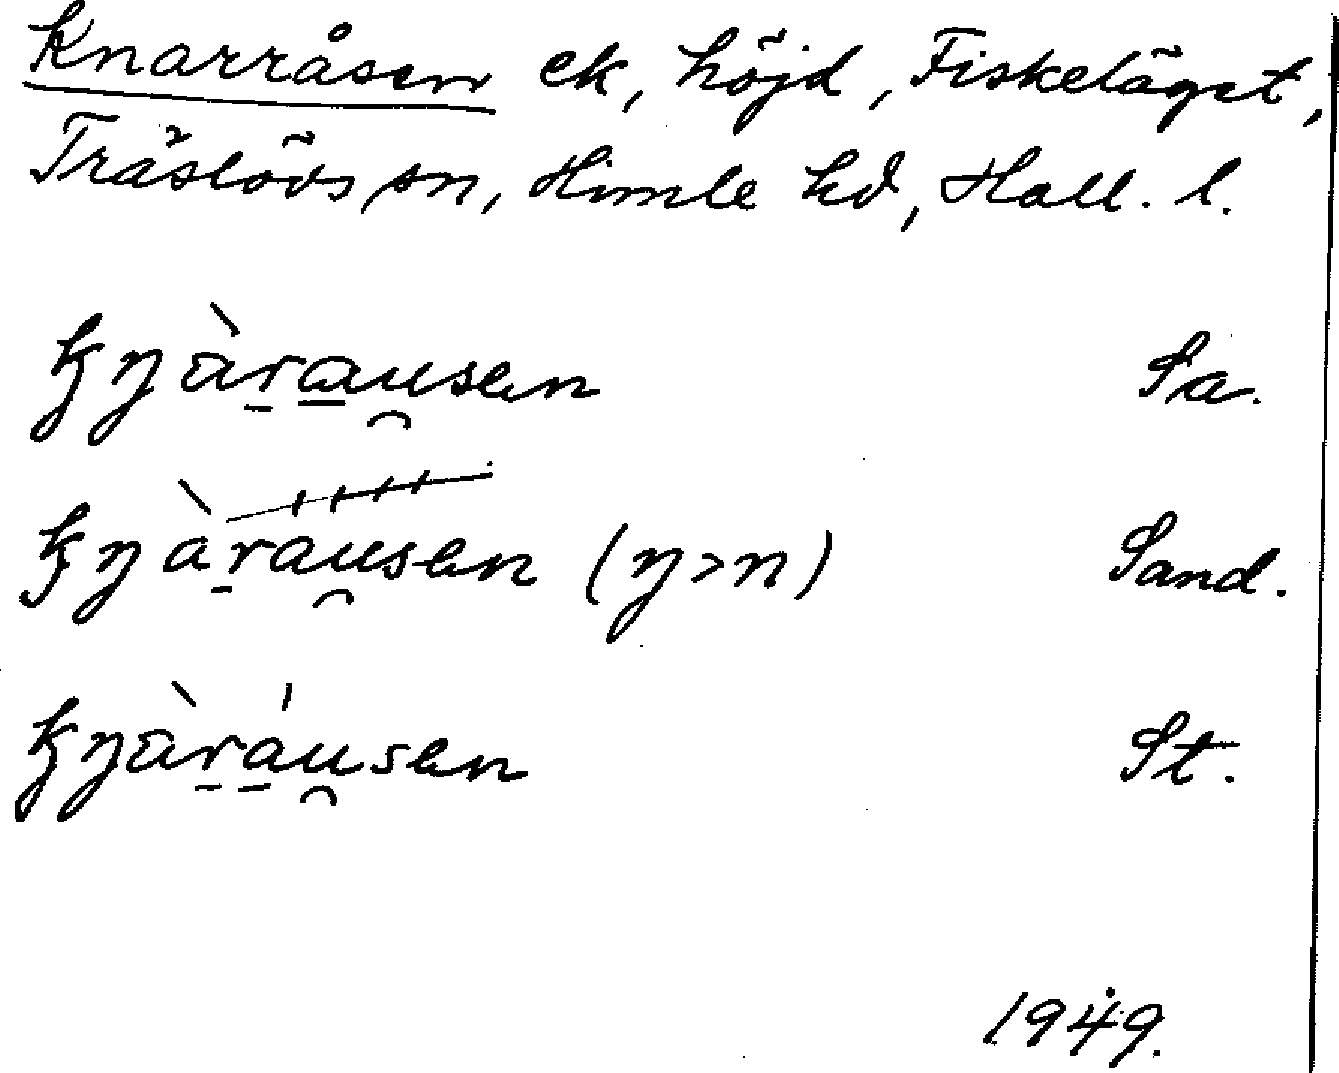 Knarråsen ek, höjd, Fiskeläget,
Träslövs sn, Himle hd, Hall. l.
kŋàr̠a̠u̯sen Sa.
kŋàr̠au̯sen (ŋ>n) Sand.
kŋàr̠a̠̍u̯sen St.
1949.